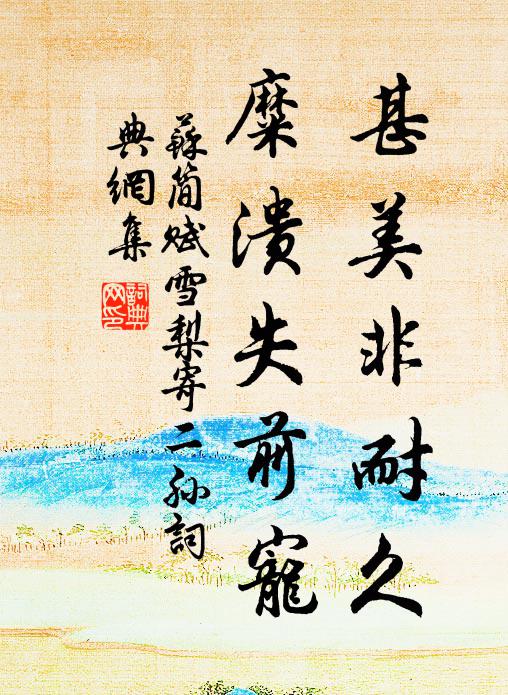 甚美非耐久
糜潰失前寵
蘇簡賦雪梨寄二孫詞
典網集
詞典
网印